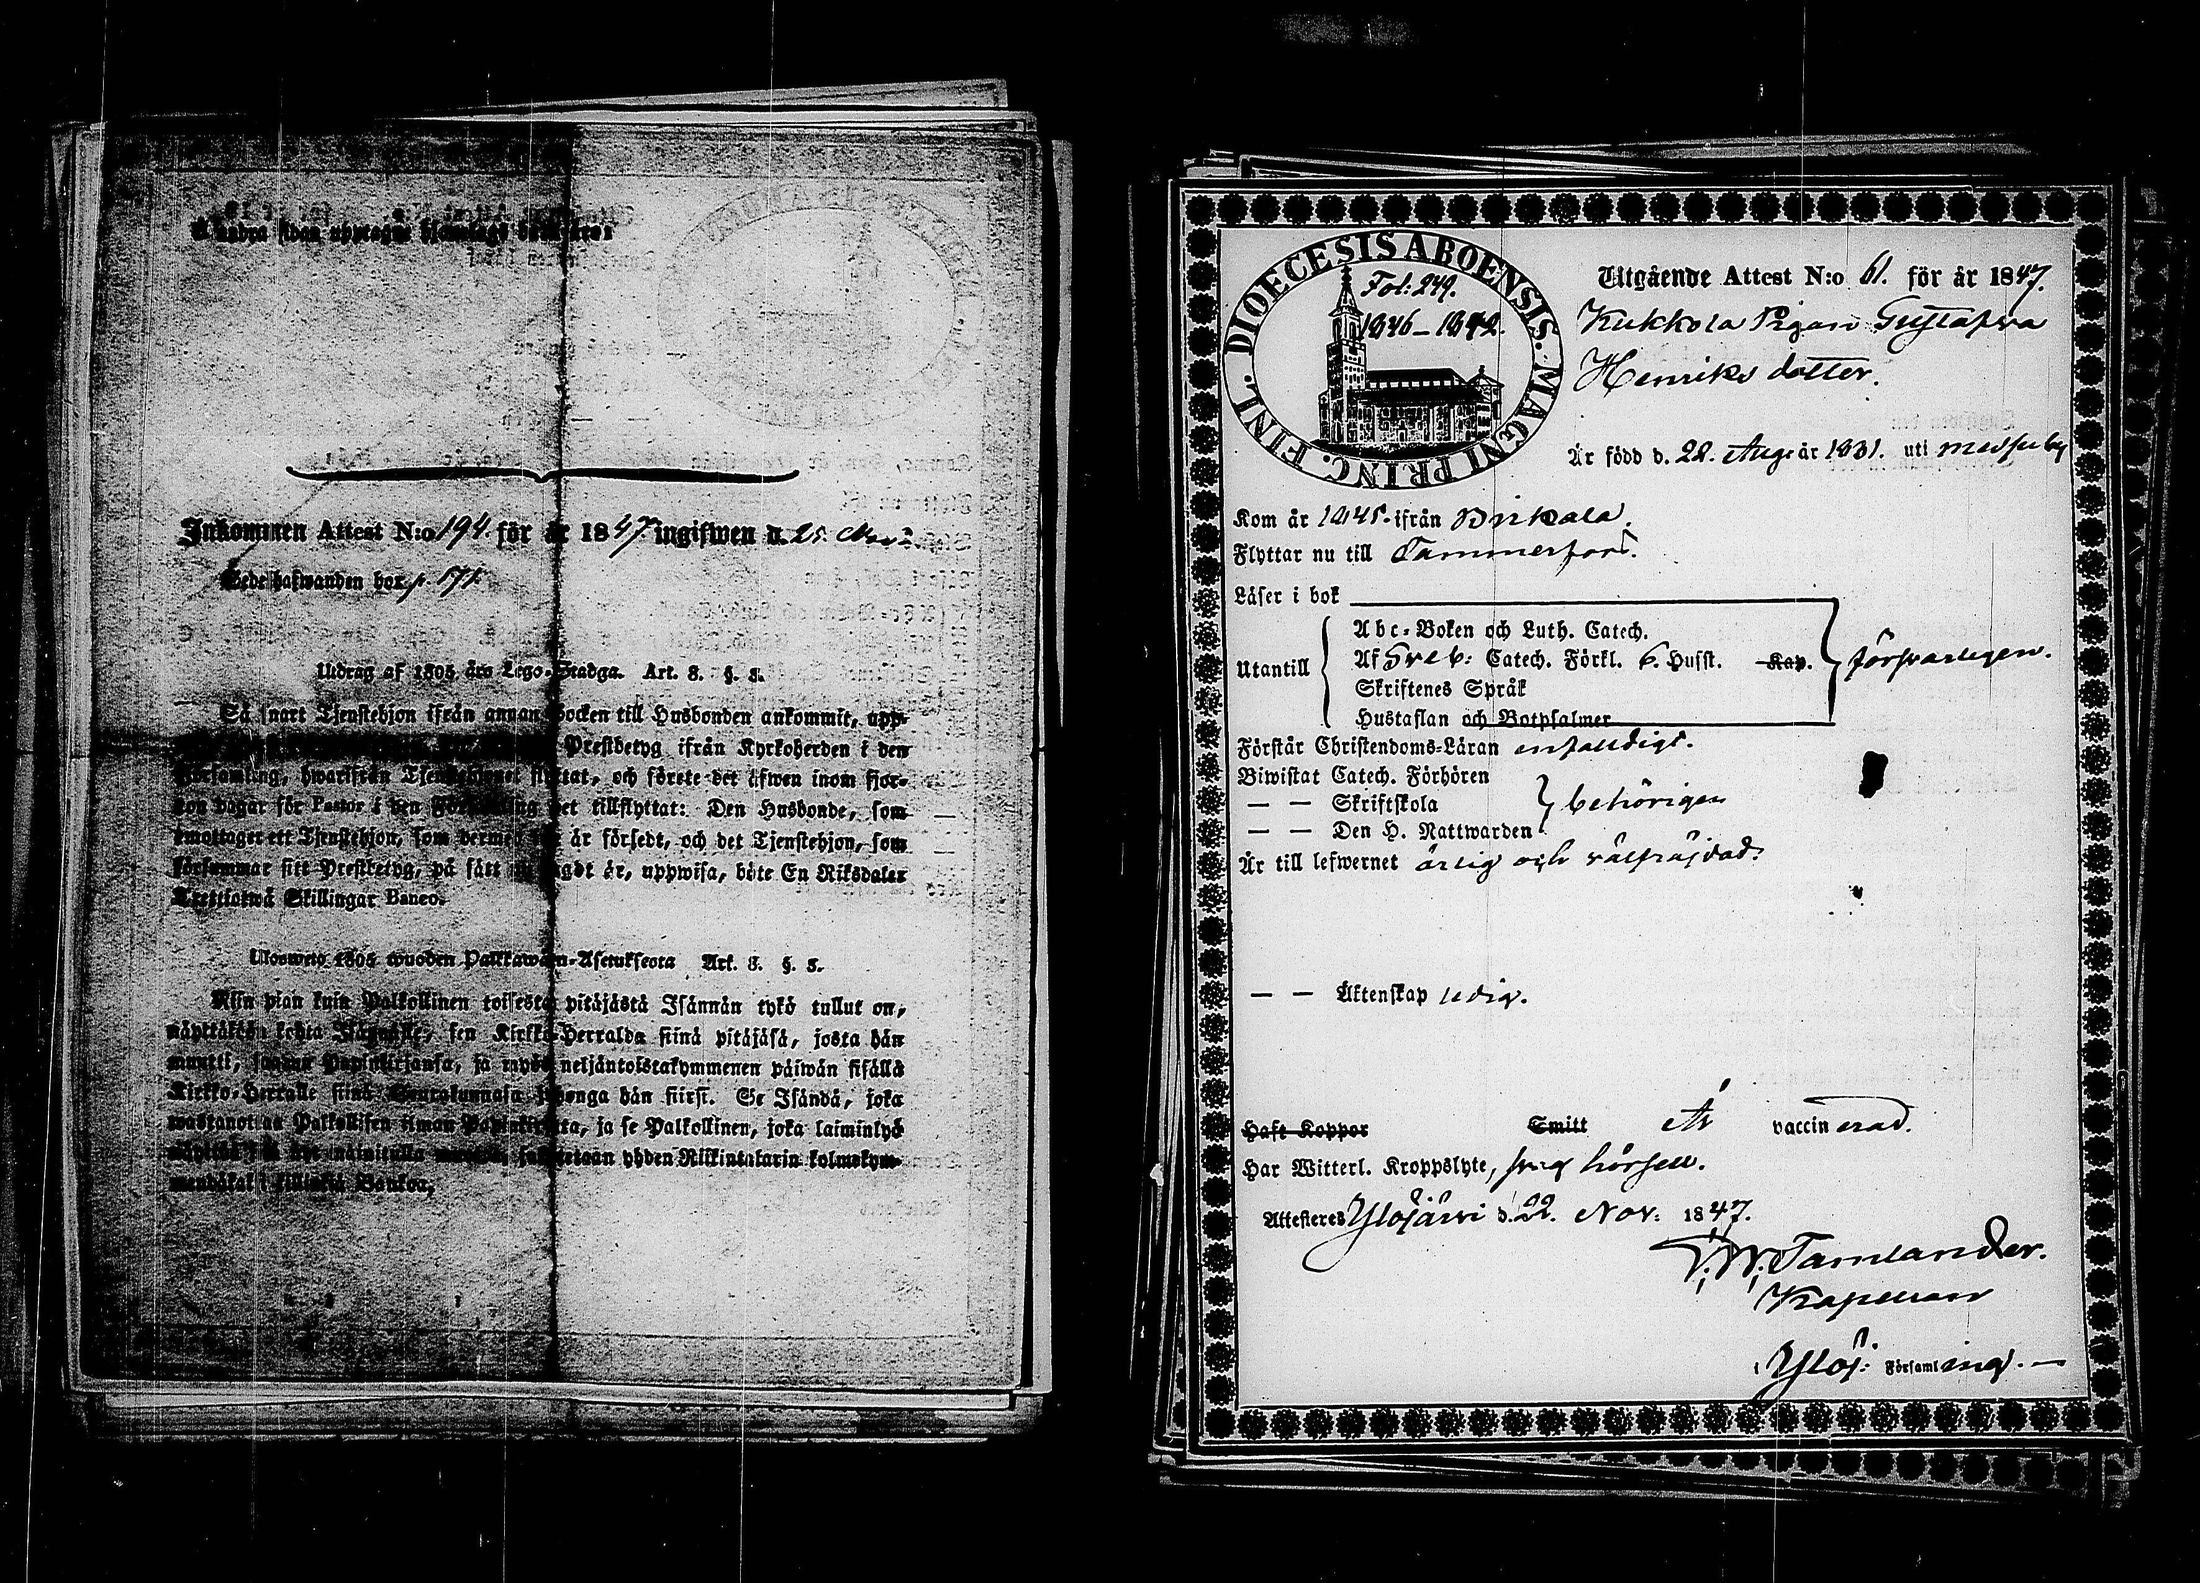 Å andra sidan upptagne
Inkommen Attest N:o 194. för år 1847. ingifwen d. 25. Nov:
Bets hafwanden box p. 171.
Utdrag af 1805 års Lego-Stadga. Art. 3. §. 5.
Så snart Tjenstehjon ifrån annan Socken till Husbonden ankommit, upp-
Prestbetyg ifrån Kyrkoherden i den
Församling, hwarifrån Tjenstehjonet flyttat, och förete det äfwen inom fjor-
ton dagar för Pastor i den Församling det tillflyttat: Den Husbonde, som
emottager ett Tjenstehjon, som dermed ej är försedt, och det Tjenstehjon, som
försummar sitt Prestbetyg, på sätt sagdt är, uppwisa, böte En Riksdaler
Trettiotwå Skillingar Banco.
Ulosweto 1805 wuoden Palkkawäen-Asetuksesta Art. 3. §. 5.
Niin pian kuin Palkollinen toisesta pitäjästä Isännän tykö tullut on,
näyttäkön kohta sen Kirkko-Herralda siinä pitäjäsä, josta hän
muutti, Papinkirjansa, ja myös neljäntoistakymmenen päiwän sisällä
Kirkko-Herralle siinä Seurakunnasa, johonga hän siirsi. Se Isändä, joka
wastanottaa Palkollisen ilman Papinkirjata, ja se Palkollinen, joka laiminlyö
yhden Riikintalarin kolmekym-
mendäkaksi killinkiä Bankoa.
DIOECESIS ABOENSIS. MAGNI PRINC. FINL.
Fol: 249.
1846–1842.
Utgående Attest N:o 61. för år 1847.
Kukkola Pigan Gustafva
Henriks dotter.
Är född d. 28. Aug: år 1831. uti medsuby
Kom år 1845. ifrån Birkala.
Flyttar nu till Tammerfors.
Läser i bok
Utantill
Abc-Boken och Luth. Catech.
Af Sveb: Catech. Förkl. 6. Hufst. Kap.
Skriftenes Språk
Hustaflan och Botpsalmer
försvarligen.
Förstår Christendoms-Läran enfaldigt.
Biwistat Catech. Förhören
— — Skriftskola
— — Den H. Nattwarden
behörigen
Är till lefwernet ärlig och välfräjdad.
— — Äktenskap ledig.
Haft Koppor Smitt Är vaccinerad.
Har Witterl. Kroppslyte, svag hörsell.
Attesteres Ylöjärvi d. 22. Nov: 1847.
F. W. Tamlander.
Kapellan
i Ylöj: Församling. —